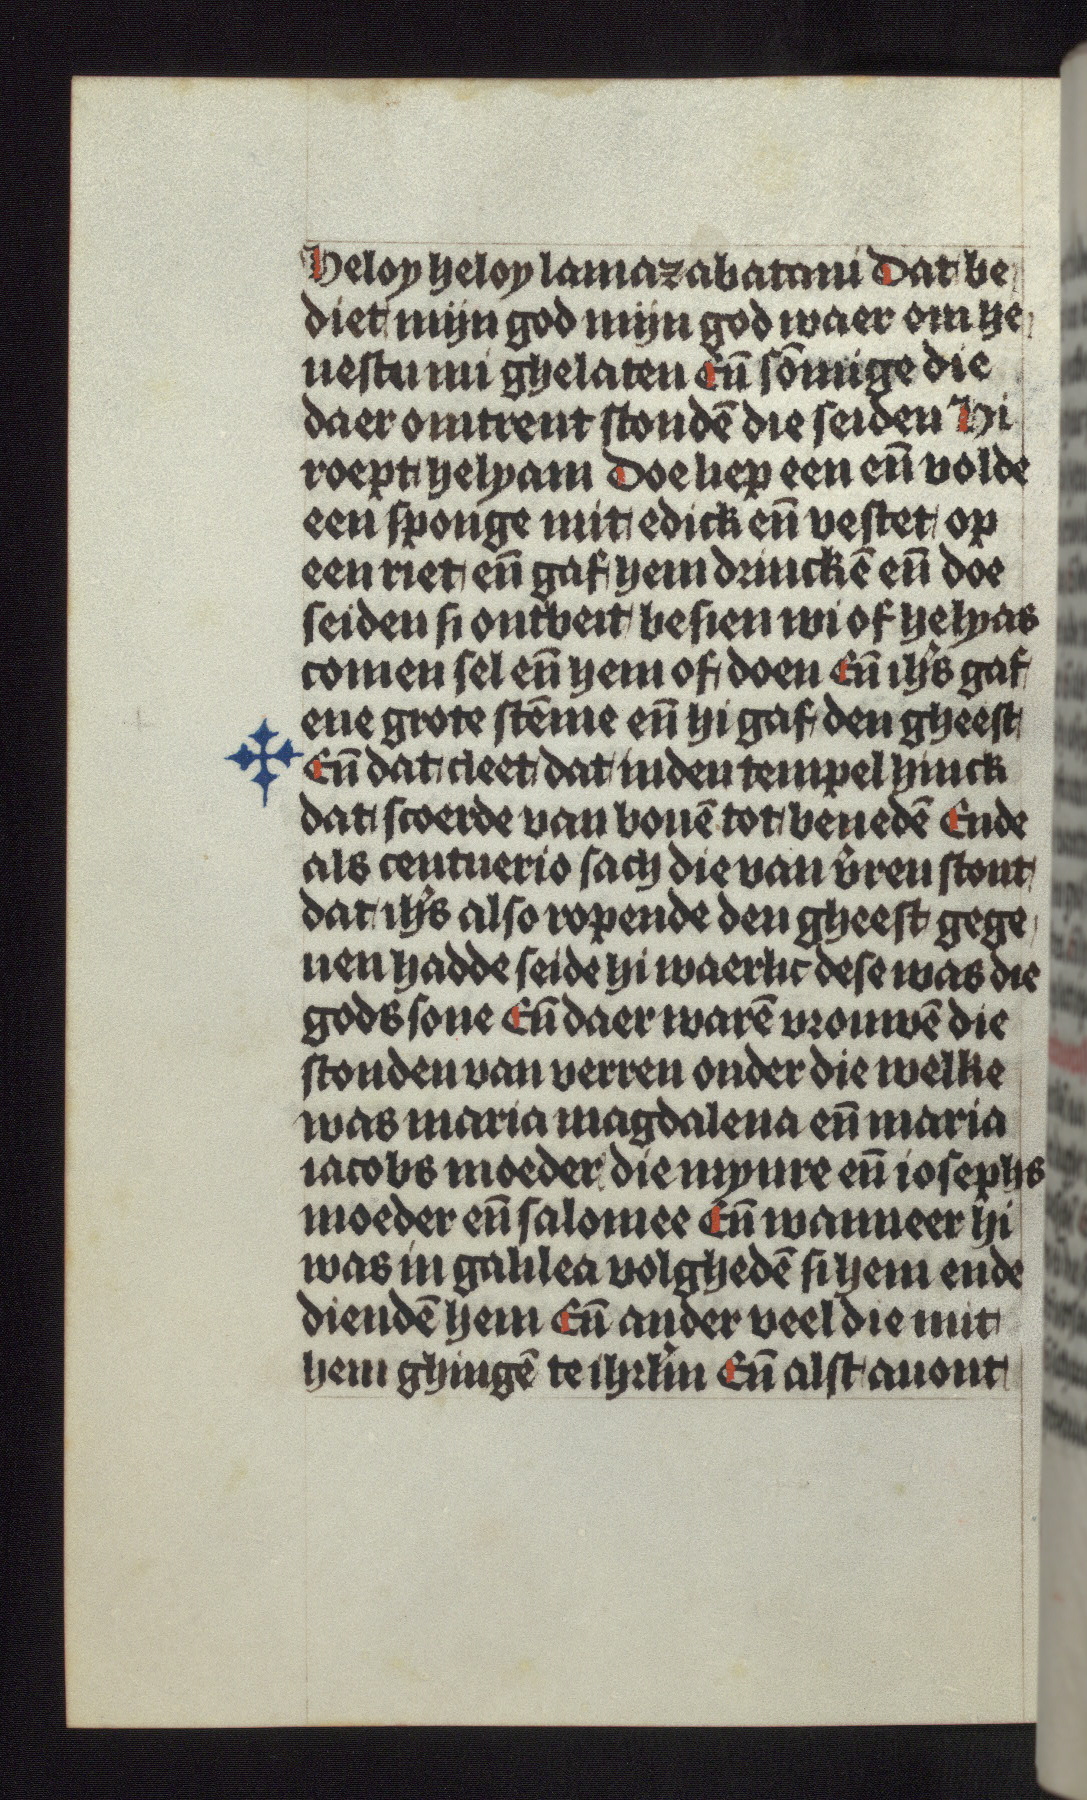 Heloy heloy lamazabatani Dat be
diet mijn god mijn god waer om he
uestu mi ghelaten Eñ sōmige die
daer omtrent stondē die seiden Hi
roept helyam Doe liep een eñ volde
een sponge mit edick eñ vestet op
een riet eñ gaf hem drinckē eñ doe
seiden si ontbeit besien wi of helyas
comen sel eñ hem of doen Eñ ihūs gaf
ene grote stēme eñ hi gaf den gheest
Eñ dat cleet dat inden tempel hinck
dat scoerde van bouē tot benedē Ende
als centuerio sach die van v̄ren stont
dat ihūs also ropende den gheest gege
uen hadde seide hi waerlic dese was die
gods sone Eñ daer warē vrouwē die
stonden van verren onder die welke
was maria magdalena eñ maria
iacobs moeder die mynre eñ iosephs
moeder eñ salomee Eñ wanneer hi
was in galilea volghedē si hem ende
diendē hem Eñ ander veel die mit
hem ghingē te ihrlm̄ Eñ alst auont